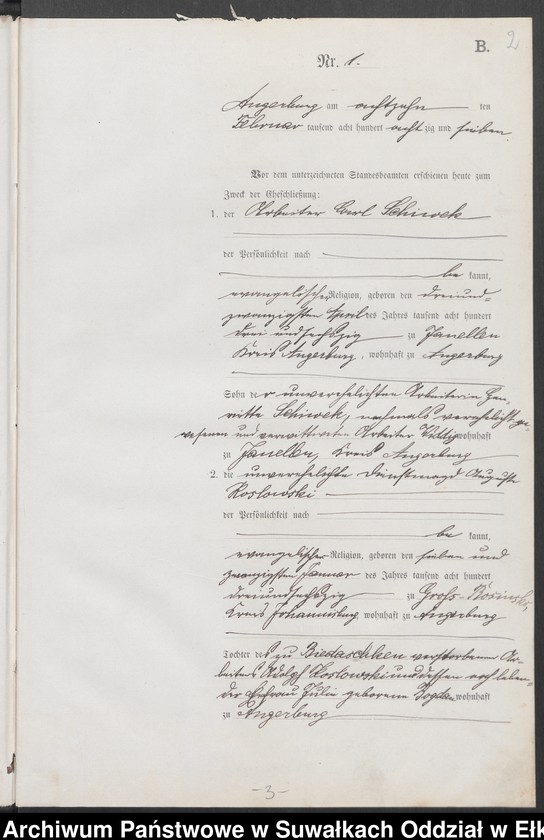 B.
2
Nr. 1.
Angerburg am achtzehn ten
Februar tausend acht hundert acht zig und sieben.
Vor dem unterzeichneten Standesbeamten erschienen heute zum
Zweck der Eheschließung:
1. der Arbeiter Carl Schiwek
der Persönlichkeit nach
be kannt,
evangelischer Religion, geboren den dreiund-
zwanzigsten April des Jahres tausend acht hundert
drei und sechszig zu Janellen
Kreis Angerburg, wohnhaft zu Angerburg
Sohn der unverehelichten Arbeiterin Hen-
riette Schiwek, nachmals verehelicht ge-
wesenen und verwittweten Arbeiter wohnhaft
zu Janellen, Kreis Angerburg
2. die unverehelichte Dienstmagd Auguste
Koslowski
der Persönlichkeit nach
be kannt,
evangelischer Religion, geboren den sieben und
zwanzigsten Januar des Jahres tausend acht hundert
dreiundsechszig zu Groß-
Kreis Johannisburg, wohnhaft zu Angerburg
Tochter des zu Biedaschken verstorbenen Ar-
beiters Adolf Koslowski und dessen noch leben-
der Ehefrau Julie geborene wohnhaft
zu Angerburg
-3-
Archiwum Państwowe w Suwałkach Oddział w Ełk